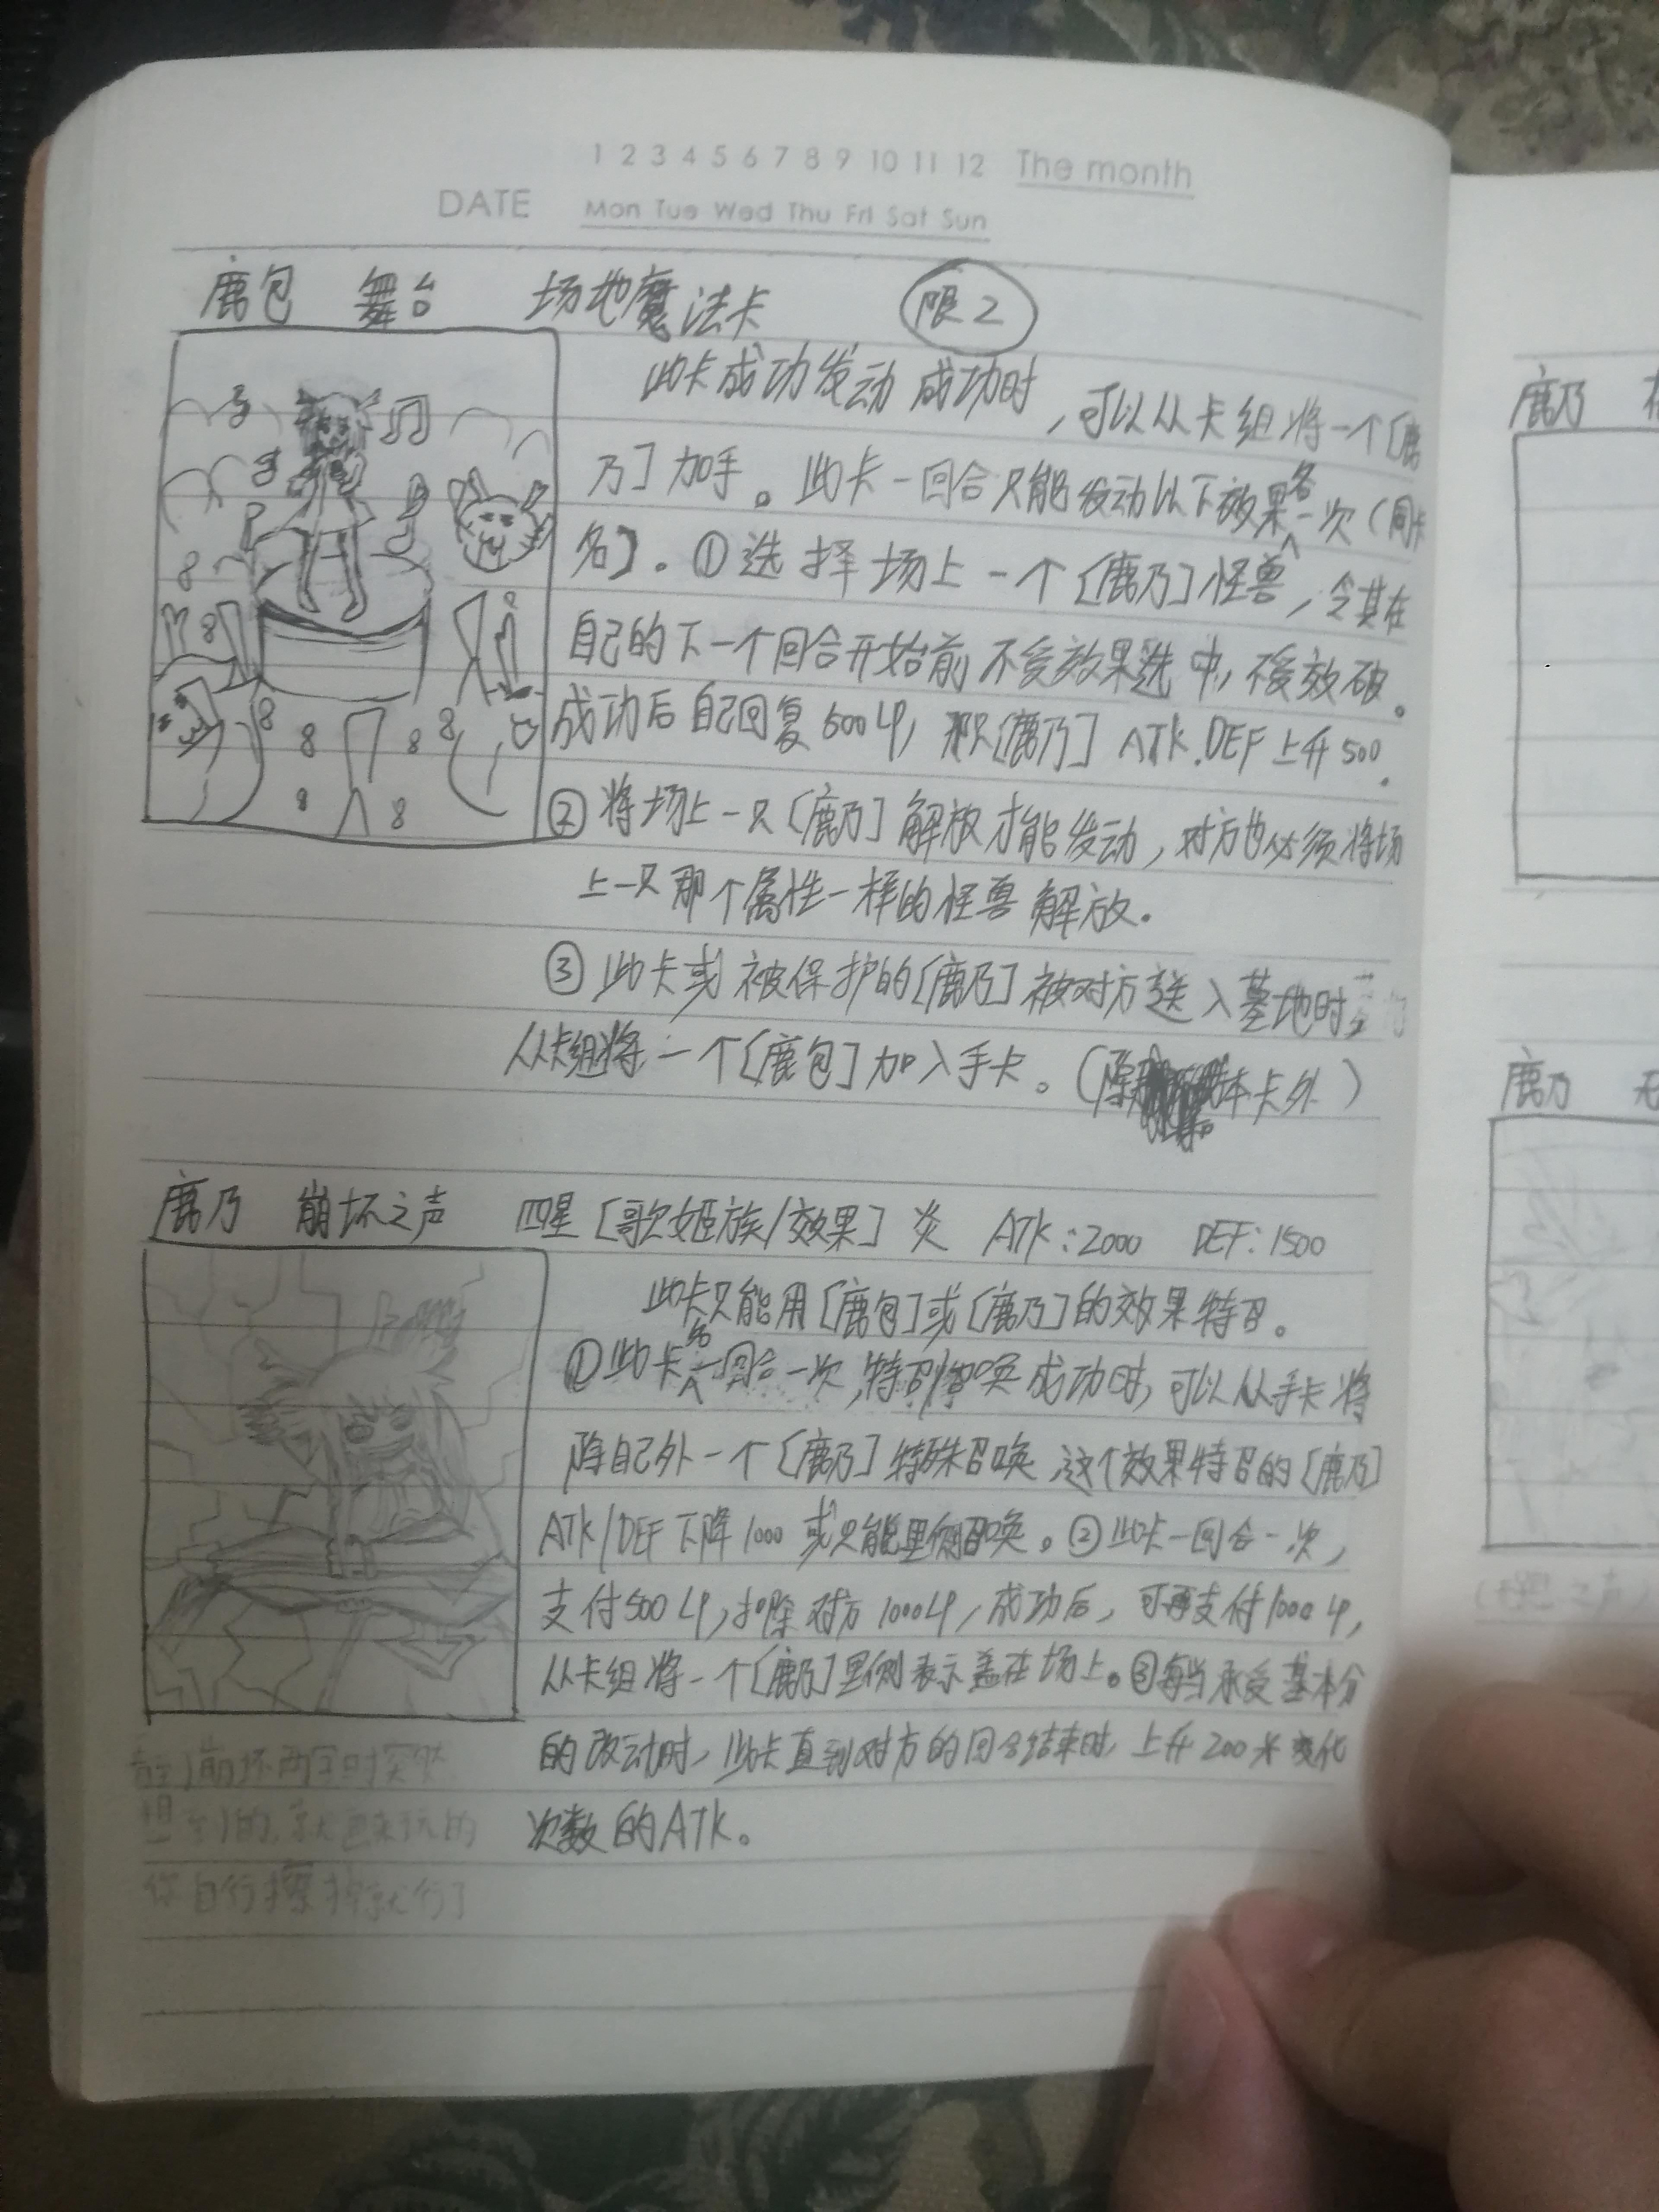 1 2 3 4 5 6 7 8 9 10 11 12 The month
DATE Mon Tue Wed Thu Fri Sat Sun
鹿包 舞台 场地魔法卡 限2
此卡成功发动成功时，可以从卡组将一个[鹿
乃]加手。此卡一回合只能发动以下效果各一次（同卡
名】。①选择场上一个[鹿乃]怪兽，令其在
自己的下一个回合开始前不受效果选中，不受效破。
成功后自己回复500LP，那只[鹿乃] ATK.DEF上升500.
②将场上一只[鹿乃]解放才能发动，对方也必须将场
上一只那个属性一样的怪兽解放。
③此卡或被保护的[鹿乃]被对方送入墓地时
从卡组将一个[鹿包]加入手卡。(除本卡外)
鹿乃 崩坏之声 四星[歌姬族/效果] 炎 ATK:2000 DEF:1500
此卡只能用[鹿包]或[鹿乃]的效果特召。
①此卡名一回合一次，特别召唤成功时，可以从手卡将
除自己外一个[鹿乃]特殊召唤，这个效果特召的[鹿乃]
ATK/DEF下降1000或只能里侧召唤。②此卡一回合一次，
支付500LP，扣除对方1000LP，成功后，可再支付1000LP，
从卡组将一个[鹿乃]里侧表示盖在场上。③每当承受基本分
的改动时，此卡直到对方的回合结束时，上升200×变化
次数的ATK。
崩坏两字时突然
想到的，就也来玩的
你自行擦掉就行了
鹿乃
鹿乃